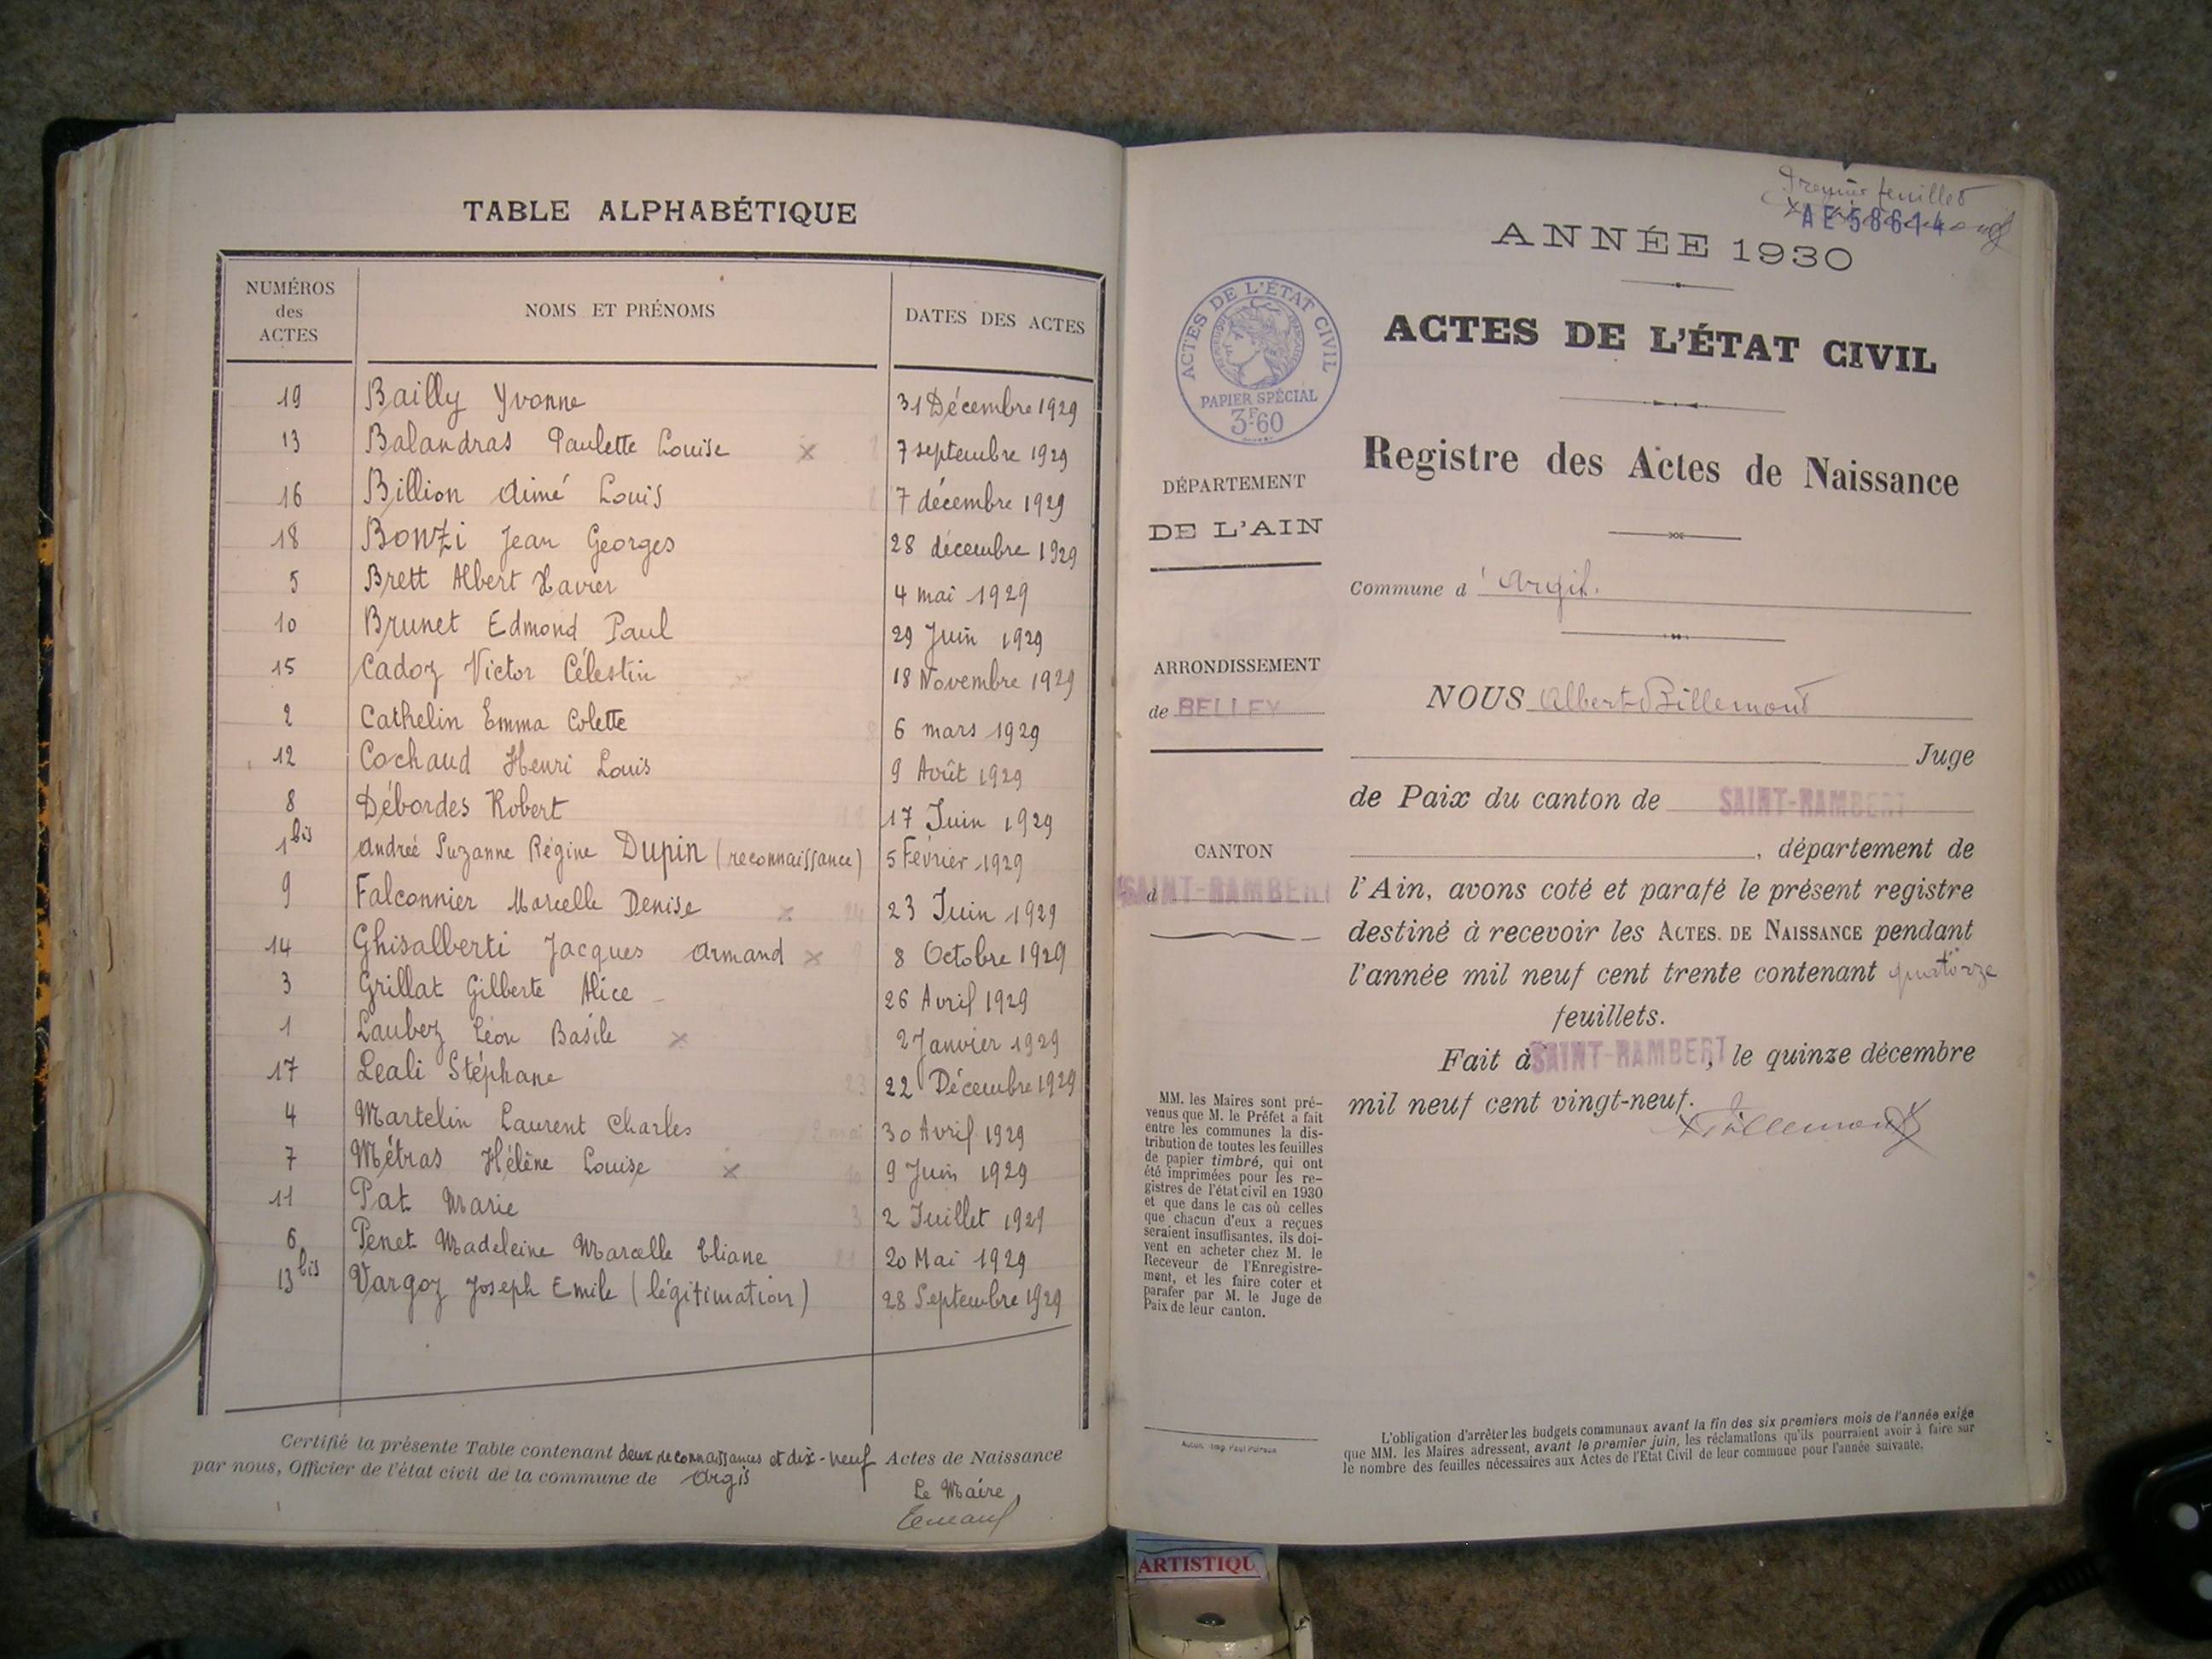 TABLE ALPHABÉTIQUE
NUMÉROS des ACTES NOMS ET PRÉNOMS DATES DES ACTES
19 Bailly Yvonne 31 Décembre 1929
13 Balandras Paulette Louise x 7 septembre 1929
16 Billion Aimé Louis 7 décembre 1929
18 Bonzi Jean Georges 28 décembre 1929
5 Brett Albert Xavier 4 mai 1929
10 Brunet Edmond Paul 29 Juin 1929
15 Cadoz Victor Célestin 18 Novembre 1929
2 Cathelin Emma Colette 6 mars 1929
12 Cochaud Henri Louis 9 Août 1929
8 Débordes Robert 17 Juin 1929
1 bis Andrée Suzanne Régine Dupin (reconnaissance) 5 Février 1929
9 Falconnier Marcelle Denise x 23 Juin 1929
14 Ghisalberti Jacques Armand x 8 Octobre 1929
3 Grillat Gilberte Alice 26 Avril 1929
1 Laubez Léon Basile x 2 Janvier 1929
17 Leali Stéphane 22 Décembre 1929
4 Martelin Laurent Charles 30 Avril 1929
7 Métras Hélène Louise x 9 Juin 1929
11 Pat Marie 2 Juillet 1929
6 Penet Madeleine Marcelle Eliane 20 Mai 1929
13 bis Vargoz Joseph Emile (légitimation) 28 Septembre 1929
Certifié la présente Table contenant deux reconnaissances et dix-neuf Actes de Naissance
par nous, Officier de l'état civil de la commune de Argis
Le Maire
Premier feuillet
AE 58614
ANNÉE 1930
ACTES DE L'ÉTAT CIVIL
RÉPUBLIQUE FRANÇAISE
PAPIER SPÉCIAL
3F60
ACTES DE L'ÉTAT CIVIL
Registre des Actes de Naissance
DÉPARTEMENT
DE L'AIN
Commune d'Argis.
ARRONDISSEMENT
de BELLEY
NOUS Albert Billemont
Juge
de Paix du canton de SAINT-RAMBERT
, département de
CANTON
d SAINT-RAMBERT
l'Ain, avons coté et parafé le présent registre
destiné à recevoir les ACTES. DE NAISSANCE pendant
l'année mil neuf cent trente contenant quatorze
feuillets.
Fait à SAINT-RAMBERT, le quinze décembre
mil neuf cent vingt-neuf.
Billemont
MM. les Maires sont pré-
venus que M. le Préfet a fait
entre les communes la dis-
tribution de toutes les feuilles
de papier timbré, qui ont
été imprimées pour les re-
gistres de l'état civil en 1930
et que dans le cas où celles
que chacun d'eux a reçues
seraient insuffisantes, ils doi-
vent en acheter chez M. le
Receveur de l'Enregistre-
ment, et les faire coter et
parafer par M. le Juge de
Paix de leur canton.
L'obligation d'arrêter les budgets communaux avant la fin des six premiers mois de l'année exige
que MM. les Maires adressent, avant le premier juin, les réclamations qu'ils pourraient avoir à faire sur
le nombre des feuilles nécessaires aux Actes de l'Etat Civil de leur commune pour l'année suivante.
ARTISTIQU